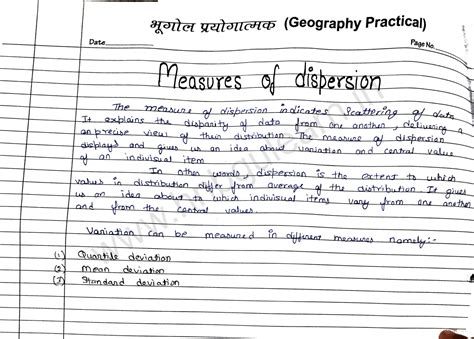 भूगोल प्रयोगात्मक (Geography Practical)
Date
Page No.
Measures of dispersion
The measure of dispersion indicates scattering of data
It explains the disparity of data from one another, delivering a
an precise view of their distribution. The measure of dispersion
displays and gives us an idea about variation and central value
of an indivisual item
In other words, dispersion is the extent to which
values in distribution differ from average of the distribution. It gives
us an idea about which indivisual items vary from one another
and from the central values.
Variation can be measured in different measures namely:-
(1) Quartile deviation
(2) Mean deviation
(3) Standard deviation